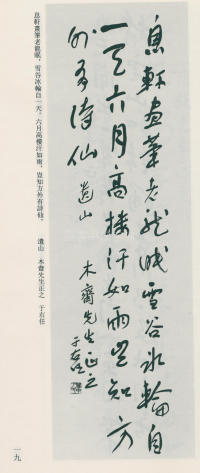 息軒畫筆老龍眠雪谷冰輪自
一天六月高樓汗如雨豈知方
外有詩仙 遺山
木齋先生正之
于右任
息軒畫筆老龍眠,雪谷冰輪自一天。六月高樓汗如雨,豈知方外有詩仙。
遺山 木齋先生正之 于右任
一九